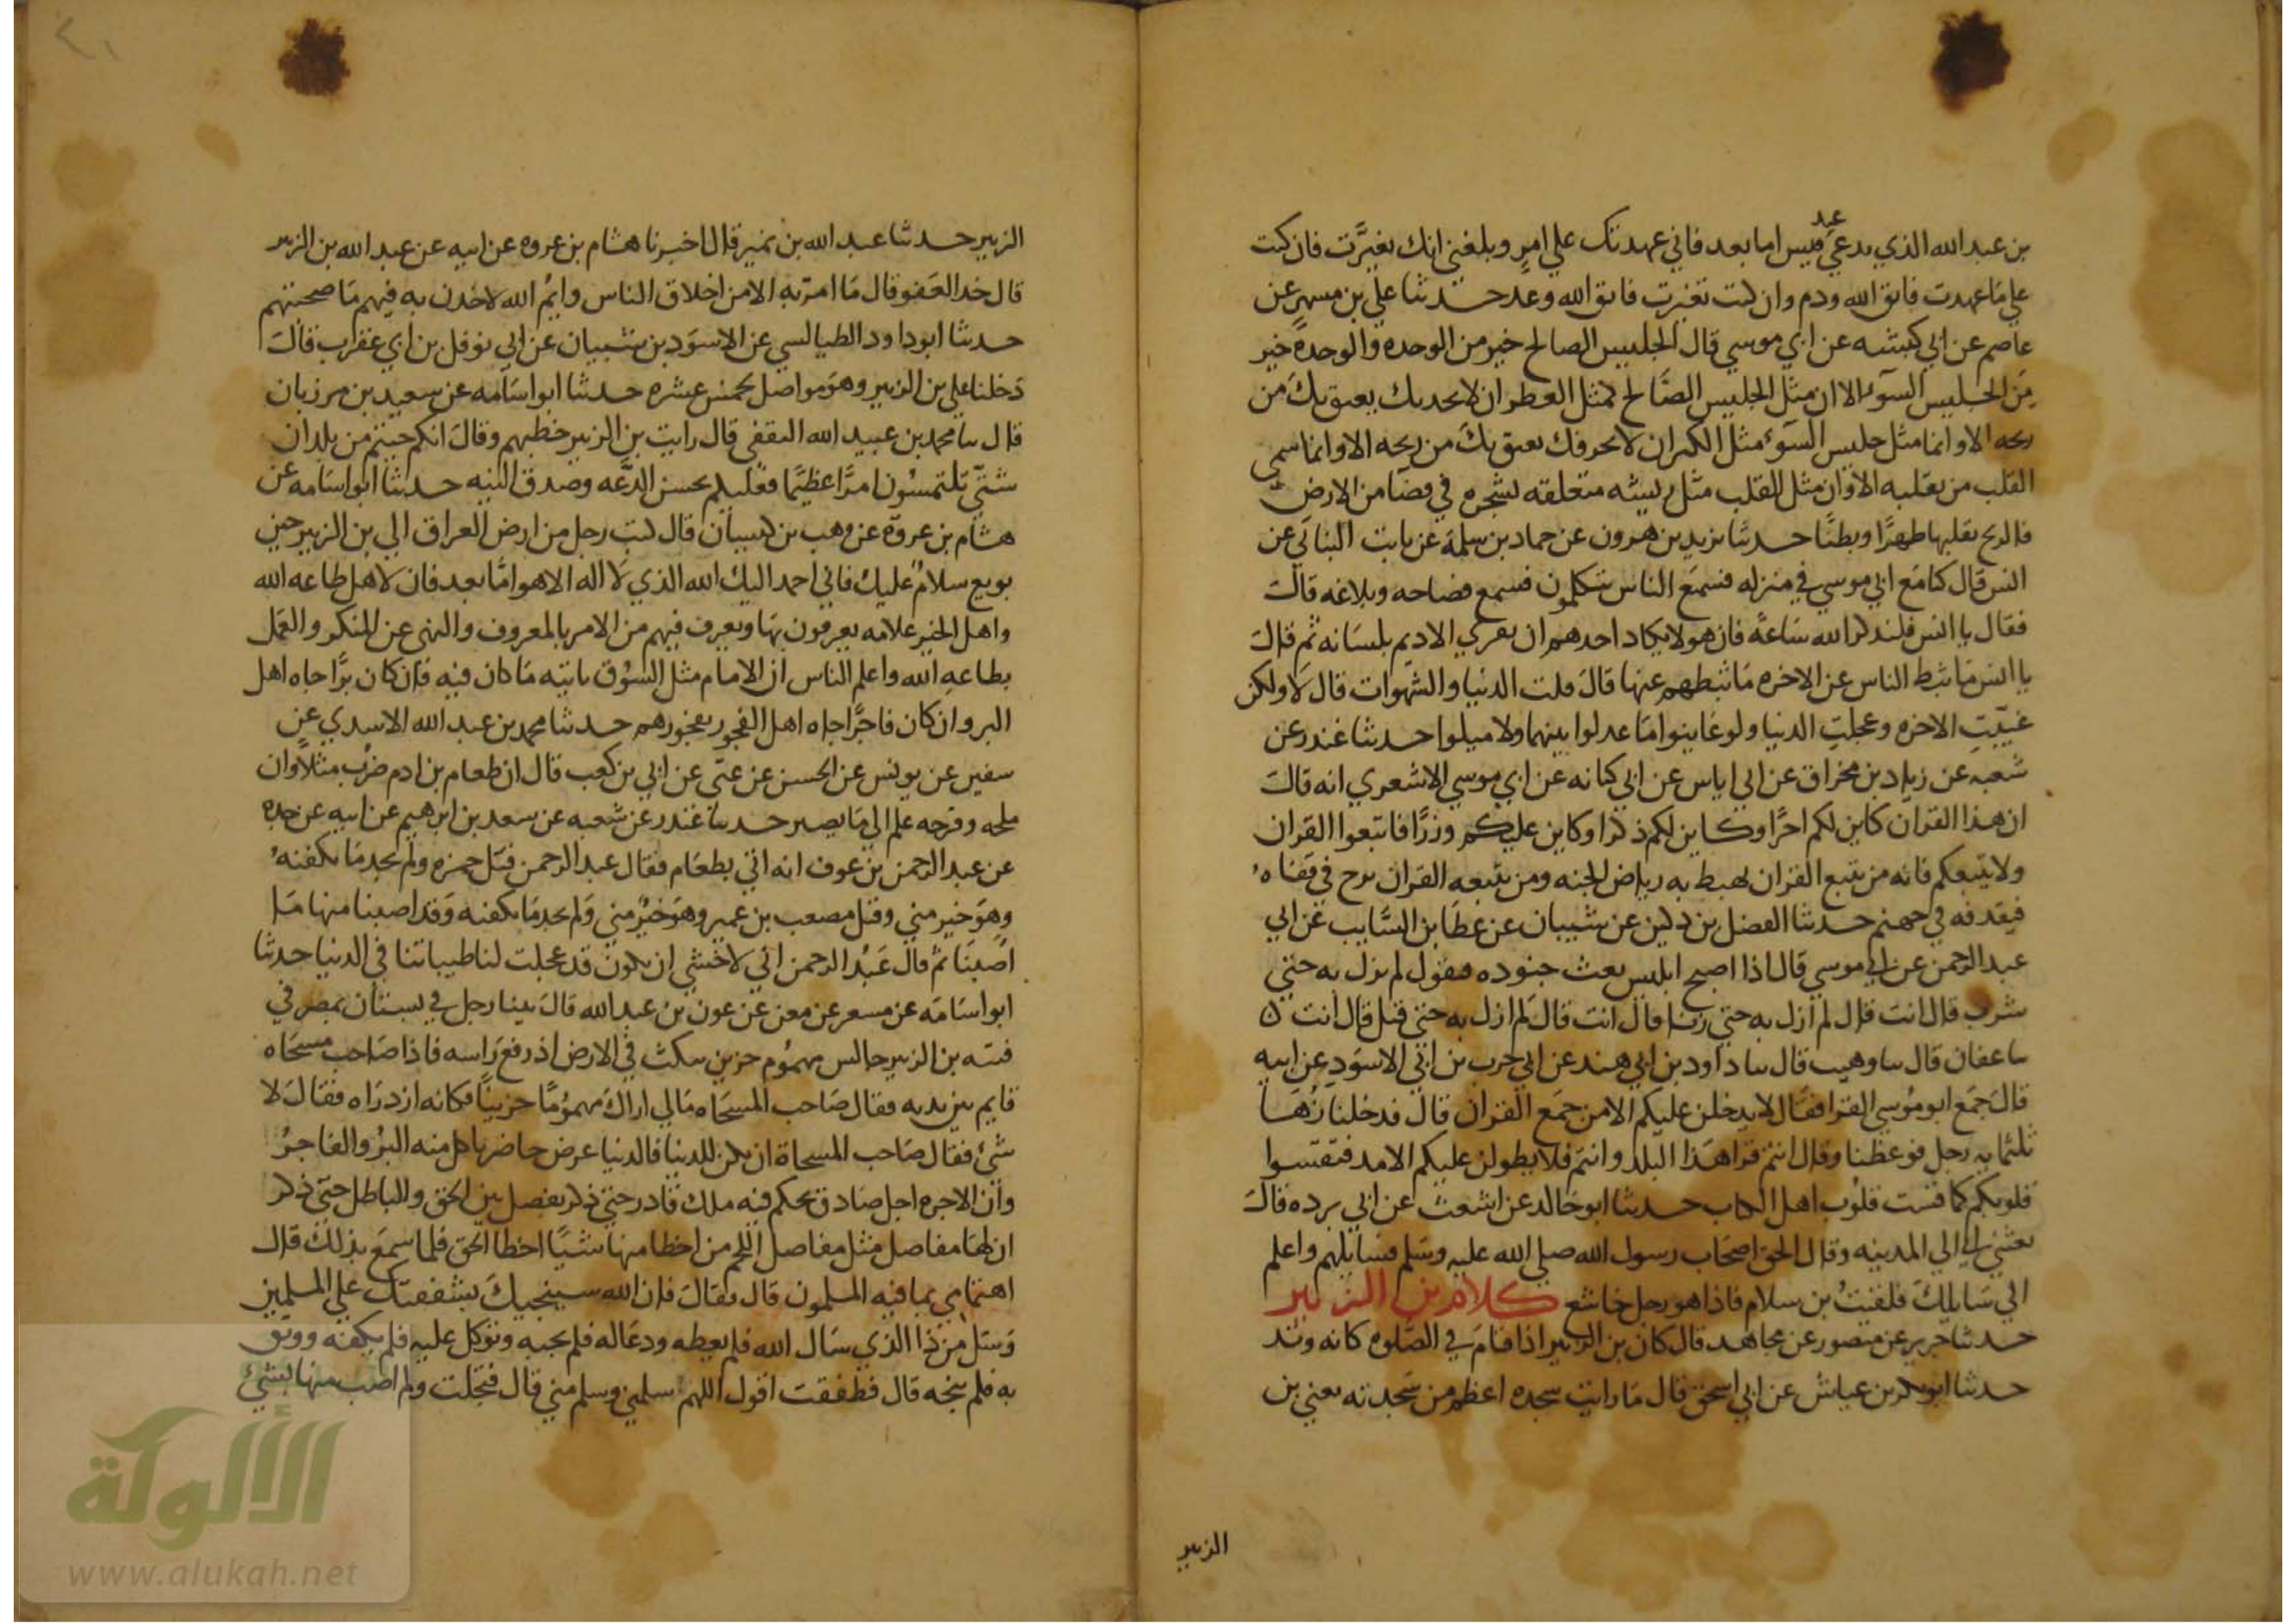 بن عبد الله الذي يدعى عبد قيس اما بعد فاني عهدتك علي امرٍ وبلغني انك تغيَّرت فان كنت
علي مَا عهدت فاتق الله ودم وان كنت تغيرت فاتق الله وعد حـدثنا علي بن مسهرٍ عن
عاصم عن ابي كبشه عن ابي موسي قال الجليس الصالح خير من الوحده والوحده خير
مِن الجليس السوء الا ان مثل الجليس الصَّالح كمثل العطر ان لا يحديك يعبق بك من
ريحه الا وانما مثل جليس السوء مثل الكيران لا يحرقك يعبق بك من ريحه الا وانما سمي
القلب من تقلبه الا وان مثل القلب مثل ريشه متعلقه بشجره في فضآ من الارض
فالريح تقلبها ظهرًا وبطنًا حدثنا يزيد بن هرون عن حماد بن سلمة عن ثابت البناني عن
انس قال كنا مَع ابي موسي في منزله فسمَع الناس يتكلمون فسمع فصاحه وبلاغه قالَ
فقال يا انس فلنذكر الله سَاعةً فان هولا يكاد احدهم ان يفري الاديم بلسَانه ثم قالَ
يا انس مَا ثبط الناس عن الاخره مَا ثبطهم عنها قالَ قلت الدنيا والشهوات قال لا ولكن
غيّبتِ الاخره وعجلتِ الدنيا ولو عَاينوا مَا عدلوا بينهما ولا ميلوا حدثنا غندر عن
شعبه عن زياد بن مخراق عن ابي اياس عن ابي كنانه عن ابي موسي الاشعري انه قالَ
ان هذا القران كاين لكم اجرًا وكاين لكم ذكرا وكاين عليكم وزرًا فاتبعوا القران
ولا يتبعكم فانه من يتبع القران يهبط به رياض الجنه ومن يتبعه القران يزح في قفاه
فيقدفه في جهنم حدثنا الفضل بن دكين عن شيبان عن عطَا بن السَّايب عن ابي
عبد الرحمن عن ابي موسي قال اذا اصبح ابليس بعث جنوده فيقول لم يزل به حتي
شرب قال انت قال لم ازل به حتي زنا قال انت قال لم ازل به حتي قتل قال انت ه
سا عفان قال سا وهيب قال سا داود بن ابي هند عن ابي حرب بن ابي الاسوَد عن ابيه
قالَ جمَع ابو مُوسي القرا فقال لا يدخلن عليكم الا من جمَع القران قال فدخلنا زُهَا
ثلثمايه رجل فوعظنا وقال انتم قرا هَذا البلد وانتم فلا يطولن عليكم الامد فتقسوا
قلوبكم كما قست قلوب اهل الكتاب حـدثنا ابو خالد عن اشعث عن ابي برده قالَ
بعثني ابي الي المدينه وقال الحق اصحَاب رسول الله صلي الله عليه وسَلم فسايلهم واعلم
اني سَايلكَ فلقيتُ بن سلام فاذا هو رجل خاشع كلام بن الزبير
حـدثنا جرير عن منصور عن مجاهد قال كان بن الزبير اذا قامَ في الصَّلوه كانه وتد
حـدثنا ابو بكر بن عياش عن ابي اسحق قال مَا رايت سجده اعظم من سَجدته يعني بن
الزبير
الزبير حـدثنا عبد الله بن نمير قال اخبرنا هشام بن عروه عن ابيه عن عبد الله بن الزبير
قال خد العَفو قال مَا امر به الا من اخلاق الناس وايمُ الله لاخدن به فيهم مَا صحبتهم
حـدثنا ابو داود الطيالسي عن الاسوَد بن شيبان عن ابي نوفل بن ابي عقرب قالَ
دَخلنا علي بن الزبير وهوَ مواصل لخمس عشره حـدثنا ابو اسَامه عن سعيد بن مرزبان
قال سا محمد بن عبيد الله الثقفي قال رايت بن الزبير خطبهم وقالَ انكم جيتم من بلدان
شتّي تلتمسُون امرًا عظيمًا فعليكم بحسن الدَّعه وصدق النيه حـدثنا ابو اسَامه عن
هشام بن عروَه عن وهب بن كيسان قال كتب رجل من ارض العراق الي بن الزبير حين
بويع سلامٌ عليك فاني احمد اليك الله الذي لا اله الا هو امَّا بعد فان لاهل طاعه الله
واهل الخير علامه يعرفون بهَا ويعرف فيهم من الامر بالمعروف والنهي عن المنكر والعَمل
بطاعهِ الله واعلم الناس ان الامام مثل السُوق ياتيه مَا كان فيه فان كان برًّا جاه اهل
البر وان كان فاجرًا جاه اهل الفجور بفجورهم حـدثنا محمد بن عبد الله الاسدي عن
سفين عن يونس عن الحسن عن عتّي عن ابي بن كعب قال ان طعام بن ادم ضرب مثلًا وان
ملحه وقزحه علم الي مَا يصير حـدثنا غندر عن شعبه عن سعد بن ابرهيم عن ابيه عن جده
عن عبد الرحمن بن عوف انه اتي بطعَام فقال عبد الرحمن قتل حمزه ولم يجد مَا يكفنهُ
وهوَ خير مني وقتل مصعب بن عمير وهوَ خيرٌ مني وَلم يجد مَا يكفنه وَقد اصبنا منها مَا
اصبنَا ثم قال عَبدُ الرحمن اني لاخشي ان يكون قد عجلت لنا طيباتنا في الدنيا حدثنا
ابو اسَامه عن مسعر عن معن عن عون بن عبد الله قالَ بينا رجل في بستان بمصر في
فتنه بن الزبير جالس مهمُوم حزين ينكث في الارض اذ رفع رَاسه فاذا صَاحب مسحَاه
قايم بين يديه فقال صَاحب المسحَاه مَالي اراك مهموُمًا حزينًا فكانه ازدرَاه فقالَ لا
شئ فقال صَاحب المسحاة ان يكن للدنيا فالدنيا عرض حاضر ياكل منه البرُ والفاجرُ
وان الاخره اجل صَادق يحكم فيه ملك قادر حتي ذكر يفصل بين الحق والباطل حتي ذكر
ان لهَا مفاصل مثل مفاصل اللحم من اخطا منها شيًا اخطا الحق فلما سمعَ بذلك قال
اهتمامي بما فيه المسلمون قال فقالَ فان الله سينجيكَ بشفقتك علي المسلمين
وَسَل من ذا الذي سَال الله فلم يعطه ودعَا له فلم يجبه وتوكل عليه فلم يكفه ووثق
به فلم ينجه قال فطفقت اقول اللهم سلمني وسلم مني قال فتجلت ولم اصب منها بشئ
الألوكة
www.alukah.net